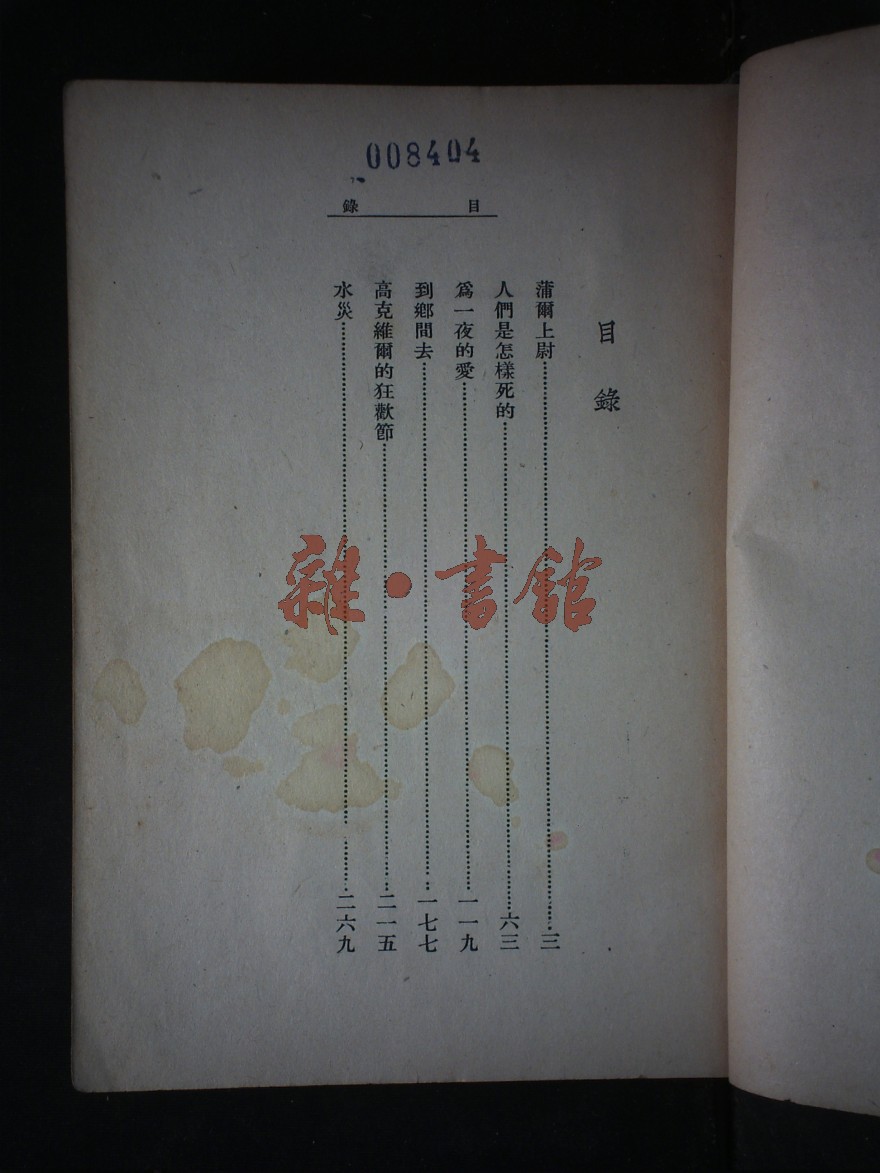 008404
目錄
目錄
蒲爾上尉……三
人們是怎樣死的……六三
爲一夜的愛……一一九
到鄕間去……一七七
高克維爾的狂歡節……二一五
水災……二六九
雜·書館